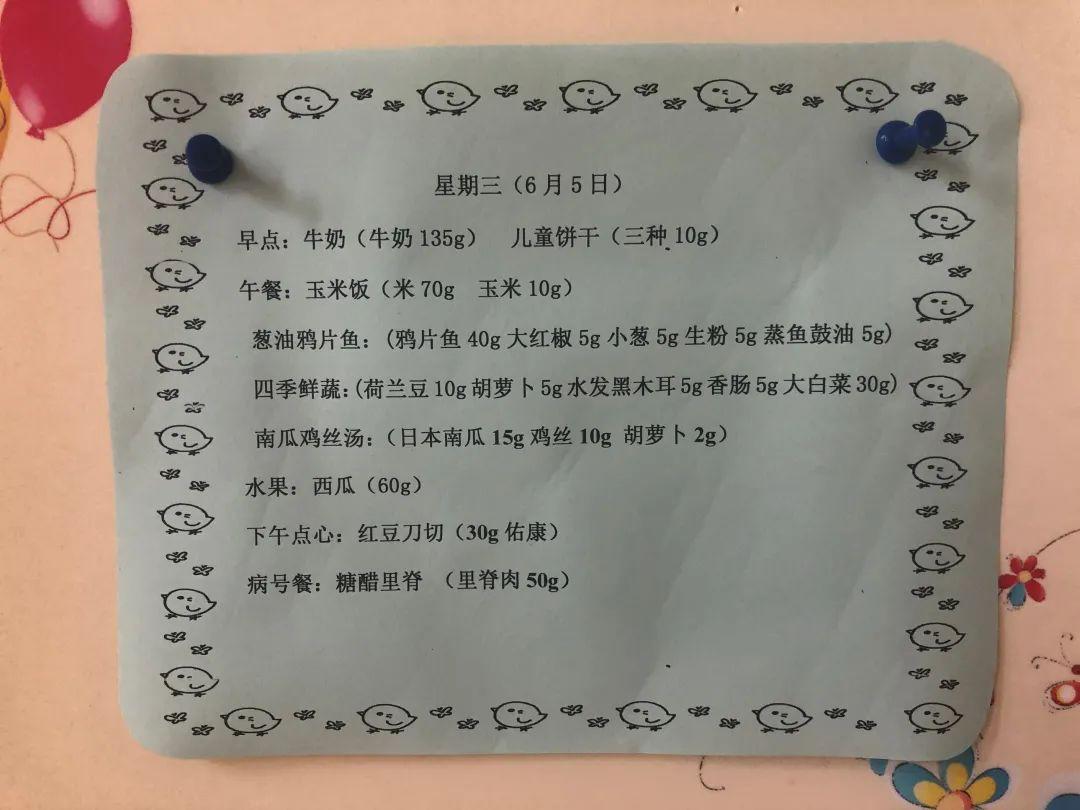 星期三（6月5日）
早点：牛奶（牛奶135g） 儿童饼干（三种10g）
午餐：玉米饭（米70g 玉米10g）
葱油鸦片鱼：(鸦片鱼40g大红椒5g小葱5g生粉5g蒸鱼鼓油5g)
四季鲜蔬：(荷兰豆10g胡萝卜5g水发黑木耳5g香肠5g大白菜30g)
南瓜鸡丝汤：（日本南瓜15g鸡丝10g 胡萝卜2g）
水果：西瓜（60g）
下午点心：红豆刀切（30g佑康）
病号餐：糖醋里脊 （里脊肉50g）